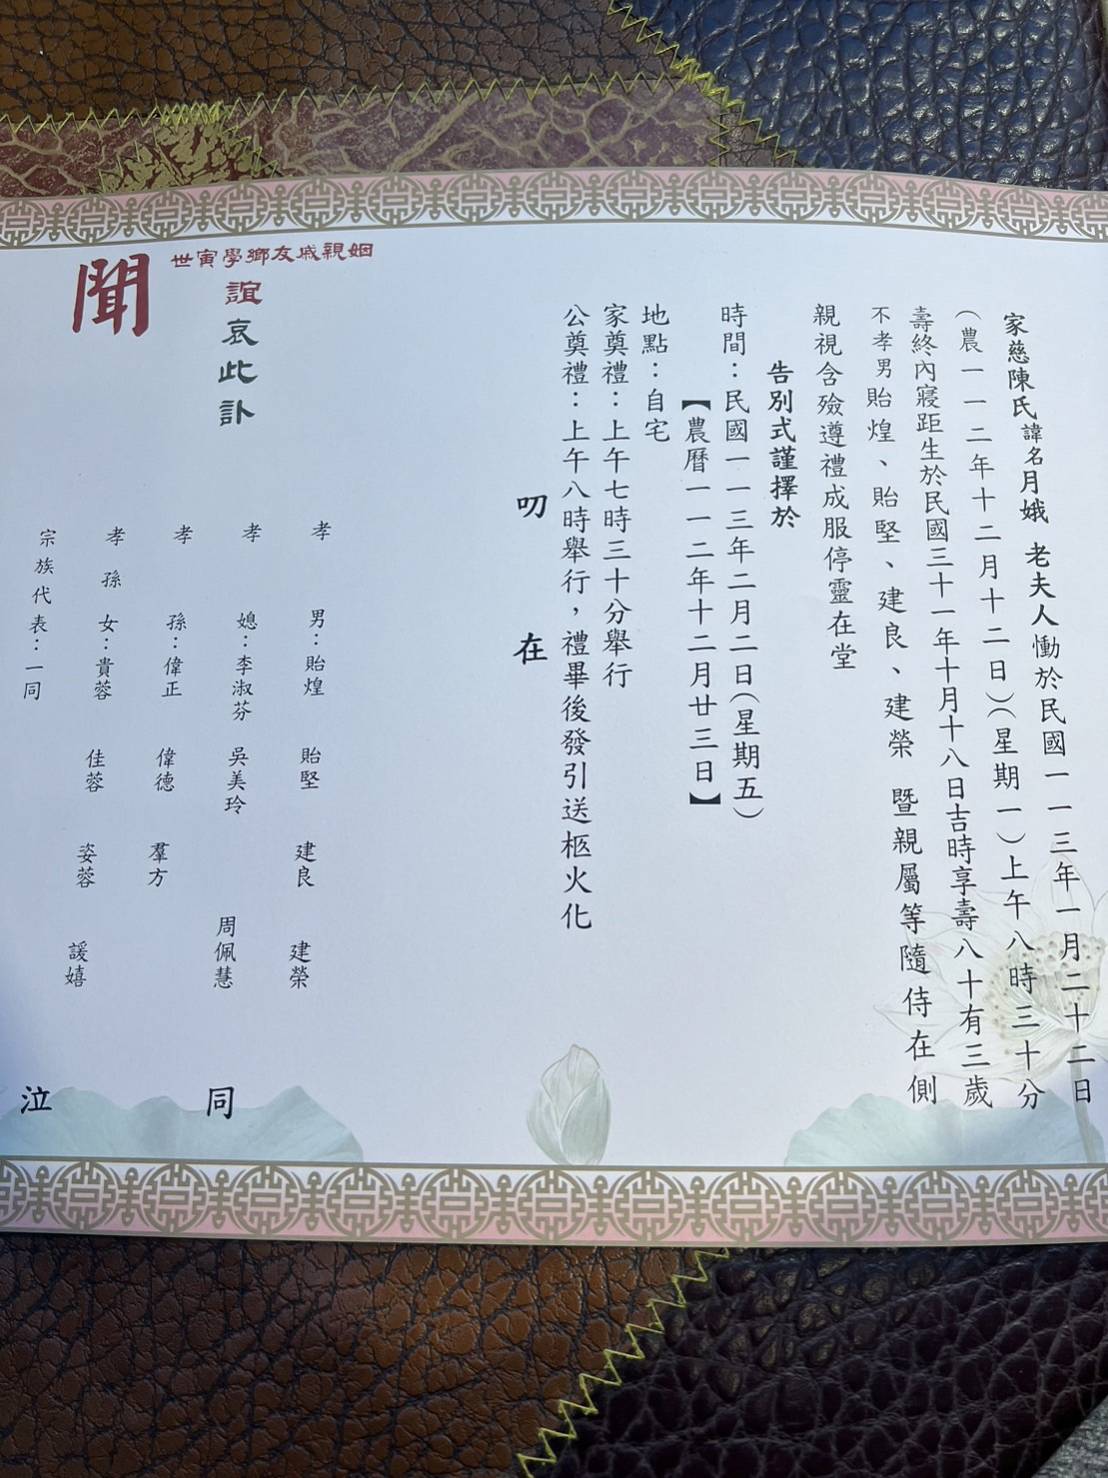 家慈陳氏諱名月娥 老夫人慟於民國一一三年一月二十二日
（農一一二年十二月十二日）（星期一）上午八時三十分
壽終內寢距生於民國三十一年十月十八日吉時享壽八十有三歲
不孝男貽煌、貽堅、建良、建榮 暨親屬等隨侍在側
親視含殮遵禮成服停靈在堂
告別式謹擇於
時間：民國一一三年二月二日（星期五）
【農曆一一二年十二月廿三日】
地點：自宅
家奠禮：上午七時三十分舉行
公奠禮：上午八時舉行，禮畢後發引送柩火化
叨 在
姻親戚友鄉學寅世
誼哀此訃
聞
孝 男：貽煌 貽堅 建良 建榮
孝 媳：李淑芬 吳美玲 周佩慧
孝 孫：偉正 偉德 羣方
孝 孫 女：貴蓉 佳蓉 姿蓉 諼嬉
宗族代表：一同
同 泣